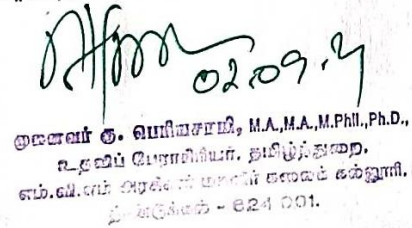 02.09.21
முனைவர் கு. பெரியசாமி, M.A.,M.A.,M.Phil.,Ph.D.,
உதவிப் பேராசிரியர், தமிழ்த்துறை,
எம்.வி.எம் அரசினர் மகளிர் கலைக் கல்லூரி,
திண்டுக்கல் - 624 001.